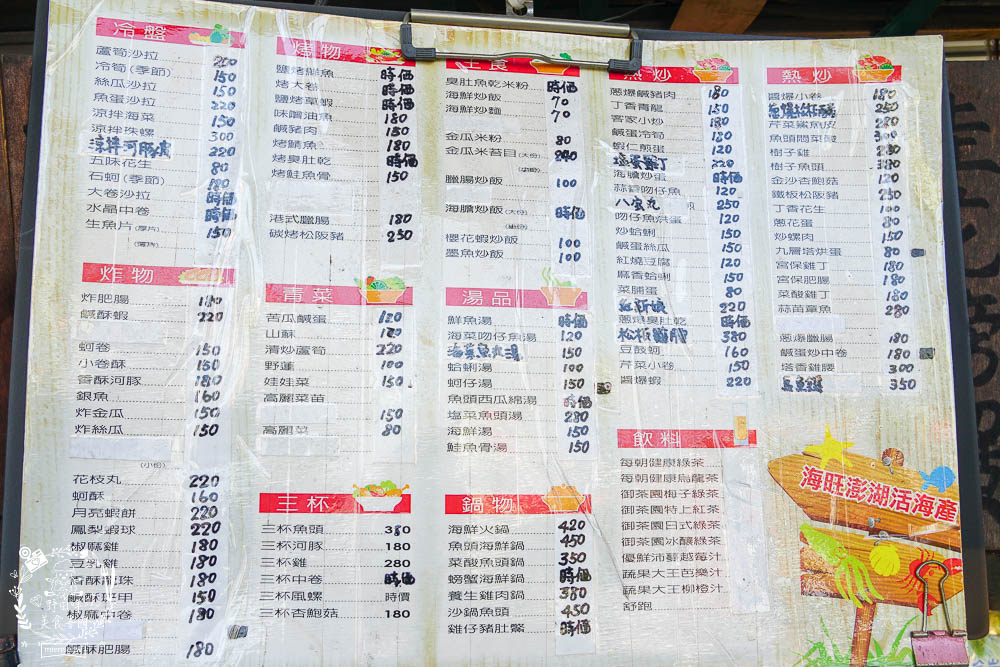 冷盤
蘆筍沙拉 200
冷筍(季節) 150
絲瓜沙拉 150
魚蛋沙拉 220
涼拌海菜 150
涼拌珠螺 300
涼拌河豚皮 220
五味花生 80
石蚵(季節) 180
大卷沙拉 時価
水晶中卷 時価
生魚片 150
炸物
炸肥腸 180
鹹酥蝦 220
蚵卷 150
小卷酥 150
香酥河豚 180
銀魚 160
炸金瓜 150
炸絲瓜 150
花枝丸 220
蚵酥 160
月亮蝦餅 220
鳳梨蝦球 220
椒麻雞 180
豆乳雞 180
香酥龍珠 180
鹹酥 150
椒麻中卷 180
鹹酥肥腸 180
烤物
鹽烤鮮魚 時価
烤大卷 時価
鹽烤草蝦 時価
味噌油魚 180
鹹豬肉 150
烤鯖魚 150
烤臭肚乾 時価
烤鮭魚骨 150
港式臘腸 180
碳烤松阪豬 250
青菜
苦瓜鹹蛋 120
山蘇
清炒蘆筍 220
野蓮 100
娃娃菜 150
高麗菜苗 150
高麗菜 80
三杯
三杯魚頭 380
三杯河豚 180
三杯雞 280
三杯中卷 時価
三杯風螺 時價
三杯杏鮑菇 180
主食
臭肚魚乾米粉 時価
海鮮炒飯 70
海鮮炒麵 70
金瓜米粉 80
金瓜米苔目
臘腸炒飯 100
海膽炒飯 時価
櫻花蝦炒飯 100
墨魚炒飯 100
湯品
鮮魚湯 時価
海菜吻仔魚湯 120
海菜魚丸湯 150
蛤蜊湯 100
蚵仔湯 150
魚頭西瓜綿湯 時価
塩菜魚頭湯 280
海鮮湯 150
鮭魚骨湯 150
鍋物
海鮮火鍋 420
魚頭海鮮鍋 450
菜酸魚頭鍋 350
螃蟹海鮮鍋 時価
養生雞肉鍋 380
沙鍋魚頭 450
雞仔豬肚鱉 時価
熱炒
蔥爆鹹豬肉 180
丁香青龍 150
客家小炒 180
鹹蛋冷筍 180
蝦仁煎蛋 120
塩蛋雞丁 220
海膽炒蛋 時価
蒜香吻仔魚 120
八宝丸 250
吻仔魚烘蛋 120
炒蛤蜊 150
鹹蛋絲瓜 150
紅燒豆腐 120
麻香蛤蜊 150
菜脯蛋 80
紅新娘 220
蔥爆臭肚乾 時価
松板豬腳 380
豆鼓蚵 160
芹菜小卷 150
醬爆蝦 220
飲料
每朝健康綠茶
每朝健康烏龍茶
御茶園梅子綠茶
御茶園特上紅茶
御茶園日式綠茶
御茶園冰釀綠茶
優鮮沛蔓越莓汁
蔬果大王芭樂汁
蔬果大王柳橙汁
舒跑
熱炒
醬爆小卷 180
250
芹菜鯊魚皮 280
魚頭悶菜酸 300
樹子雞 230
樹子魚頭 380
金沙杏鮑菇 120
鐵板松阪豬 250
丁香花生 100
蔥花蛋 80
炒螺肉 150
九層塔烘蛋 80
宮保雞丁 180
宮保肥腸 180
菜酸雞丁 180
蒜苗草魚 280
蔥爆臘腸 180
鹹蛋炒中卷 180
塔香雞腰 300
350
海旺澎湖活海產